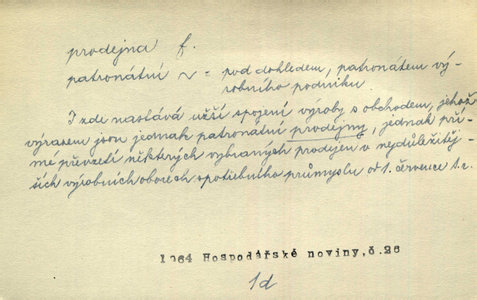 prodejna f.
patronátní ~ = pod dohledem, patronátem vý-
robního podniku
I zde nastává užší spojení výroby s obchodem, jehož
výrazem jsou jednak patronátní prodejny, jednak pří-
mé převzetí některých vybraných prodejen v nejdůležitěj-
ších výrobních oborech spotřebního průmyslu od 1. července t.r.
1964 Hospodářské noviny,č.26
1d